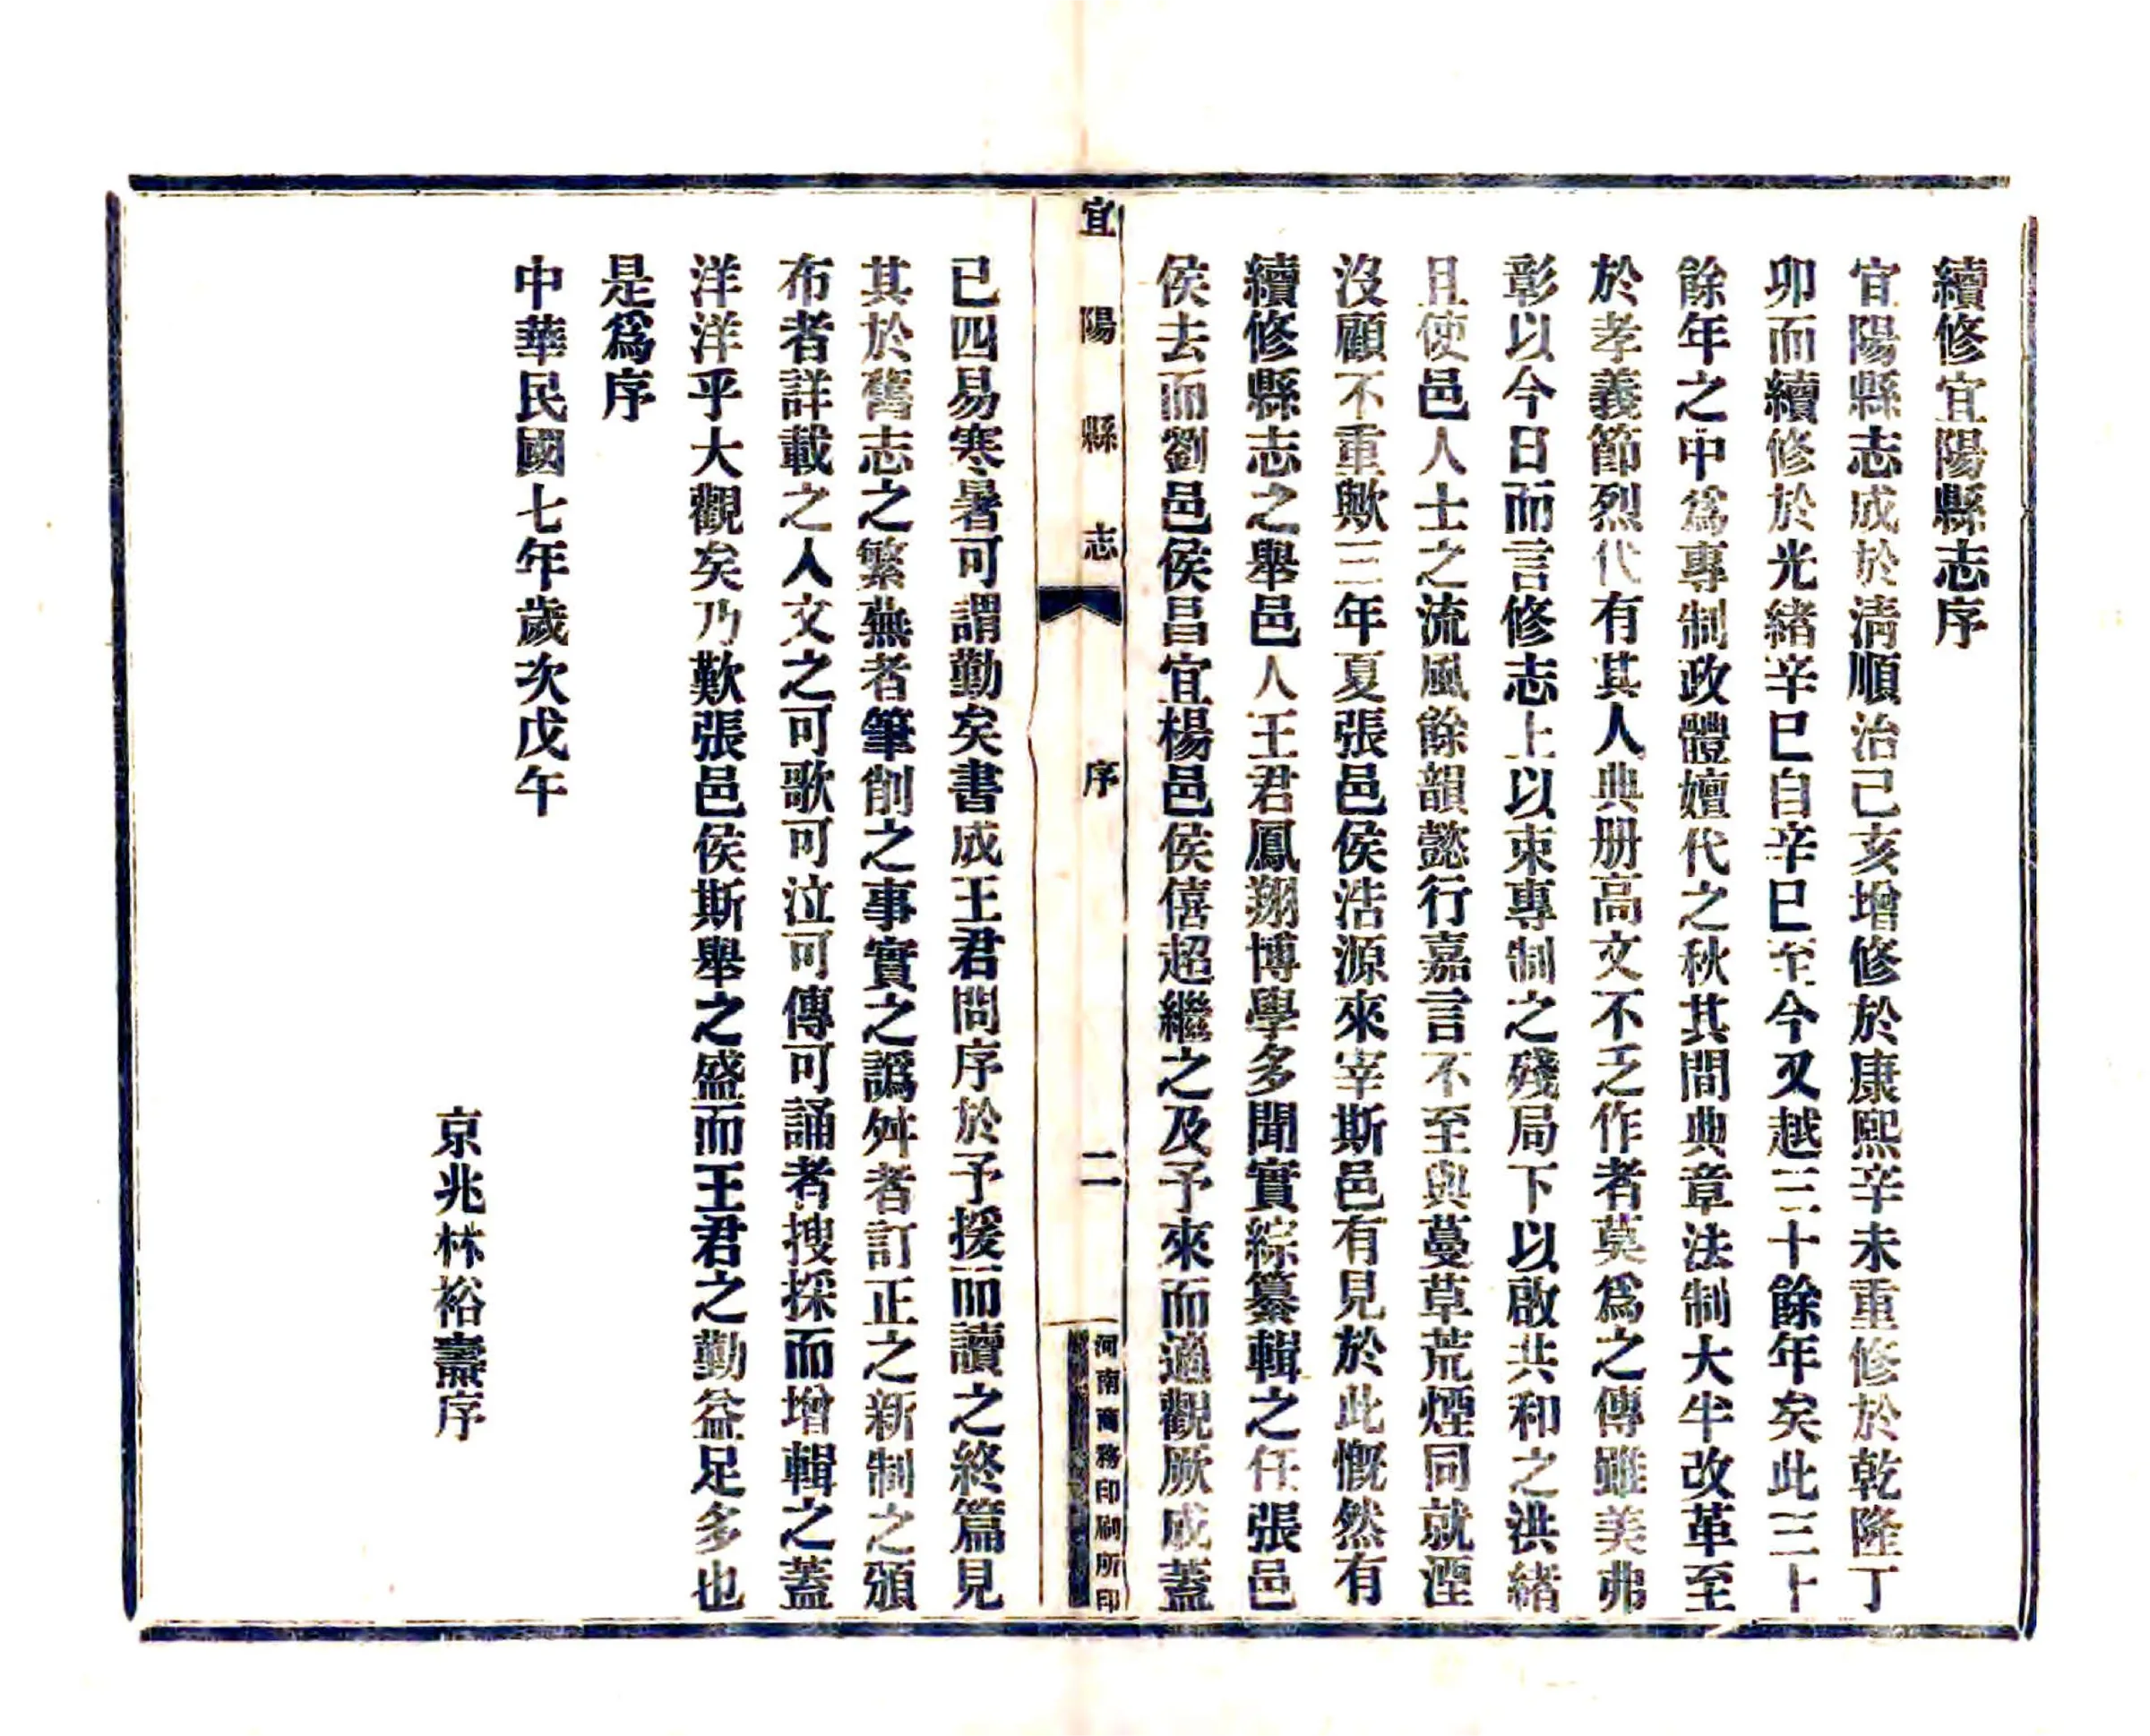 續修宜陽縣志序
宜陽縣志成於淸順治己亥增修於康熙辛未重修於乾隆丁
卯而續修於光緒辛巳自辛巳至今又越三十餘年矣此三十
餘年之中爲專制政體嬗代之秋其間典章法制大半改革至
於孝義節烈代有其人典册高文不乏作者莫爲之傳雖美弗
彰以今日而言修志上以束專制之殘局下以啟共和之洪緒
且使邑人士之流風餘韻懿行嘉言不至與蔓草荒煙同就湮
沒顧不重歟三年夏張邑侯浩源來宰斯邑有見於此慨然有
續修縣志之舉邑人王君鳳翔博學多聞實綜纂輯之任張邑
侯去而劉邑侯昌宜楊邑侯僖超繼之及予來而適觀厥成蓋
宜陽縣志
序
二
河南商務印刷所印
已四易寒暑可謂勤矣書成王君問序於予援而讀之終篇見
其於舊志之繁蕪者筆削之事實之譌舛者訂正之新制之頒
布者詳載之人文之可歌可泣可傳可誦者搜採而增輯之蓋
洋洋乎大觀矣乃歎張邑侯斯舉之盛而王君之勤益足多也
是爲序
中華民國七年歲次戊午
京兆林裕燾序